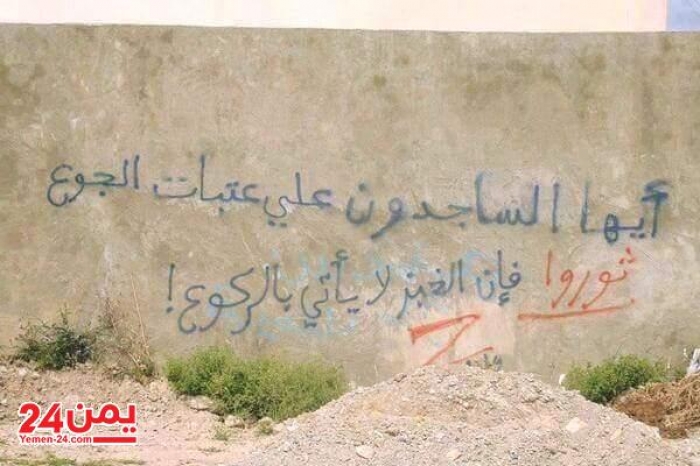 أيها الساجدون علي عتبات الجوع
ثوروا فإن الخبز لا يأتي بالركوع!
Z
يمن24
Yemen-24.com